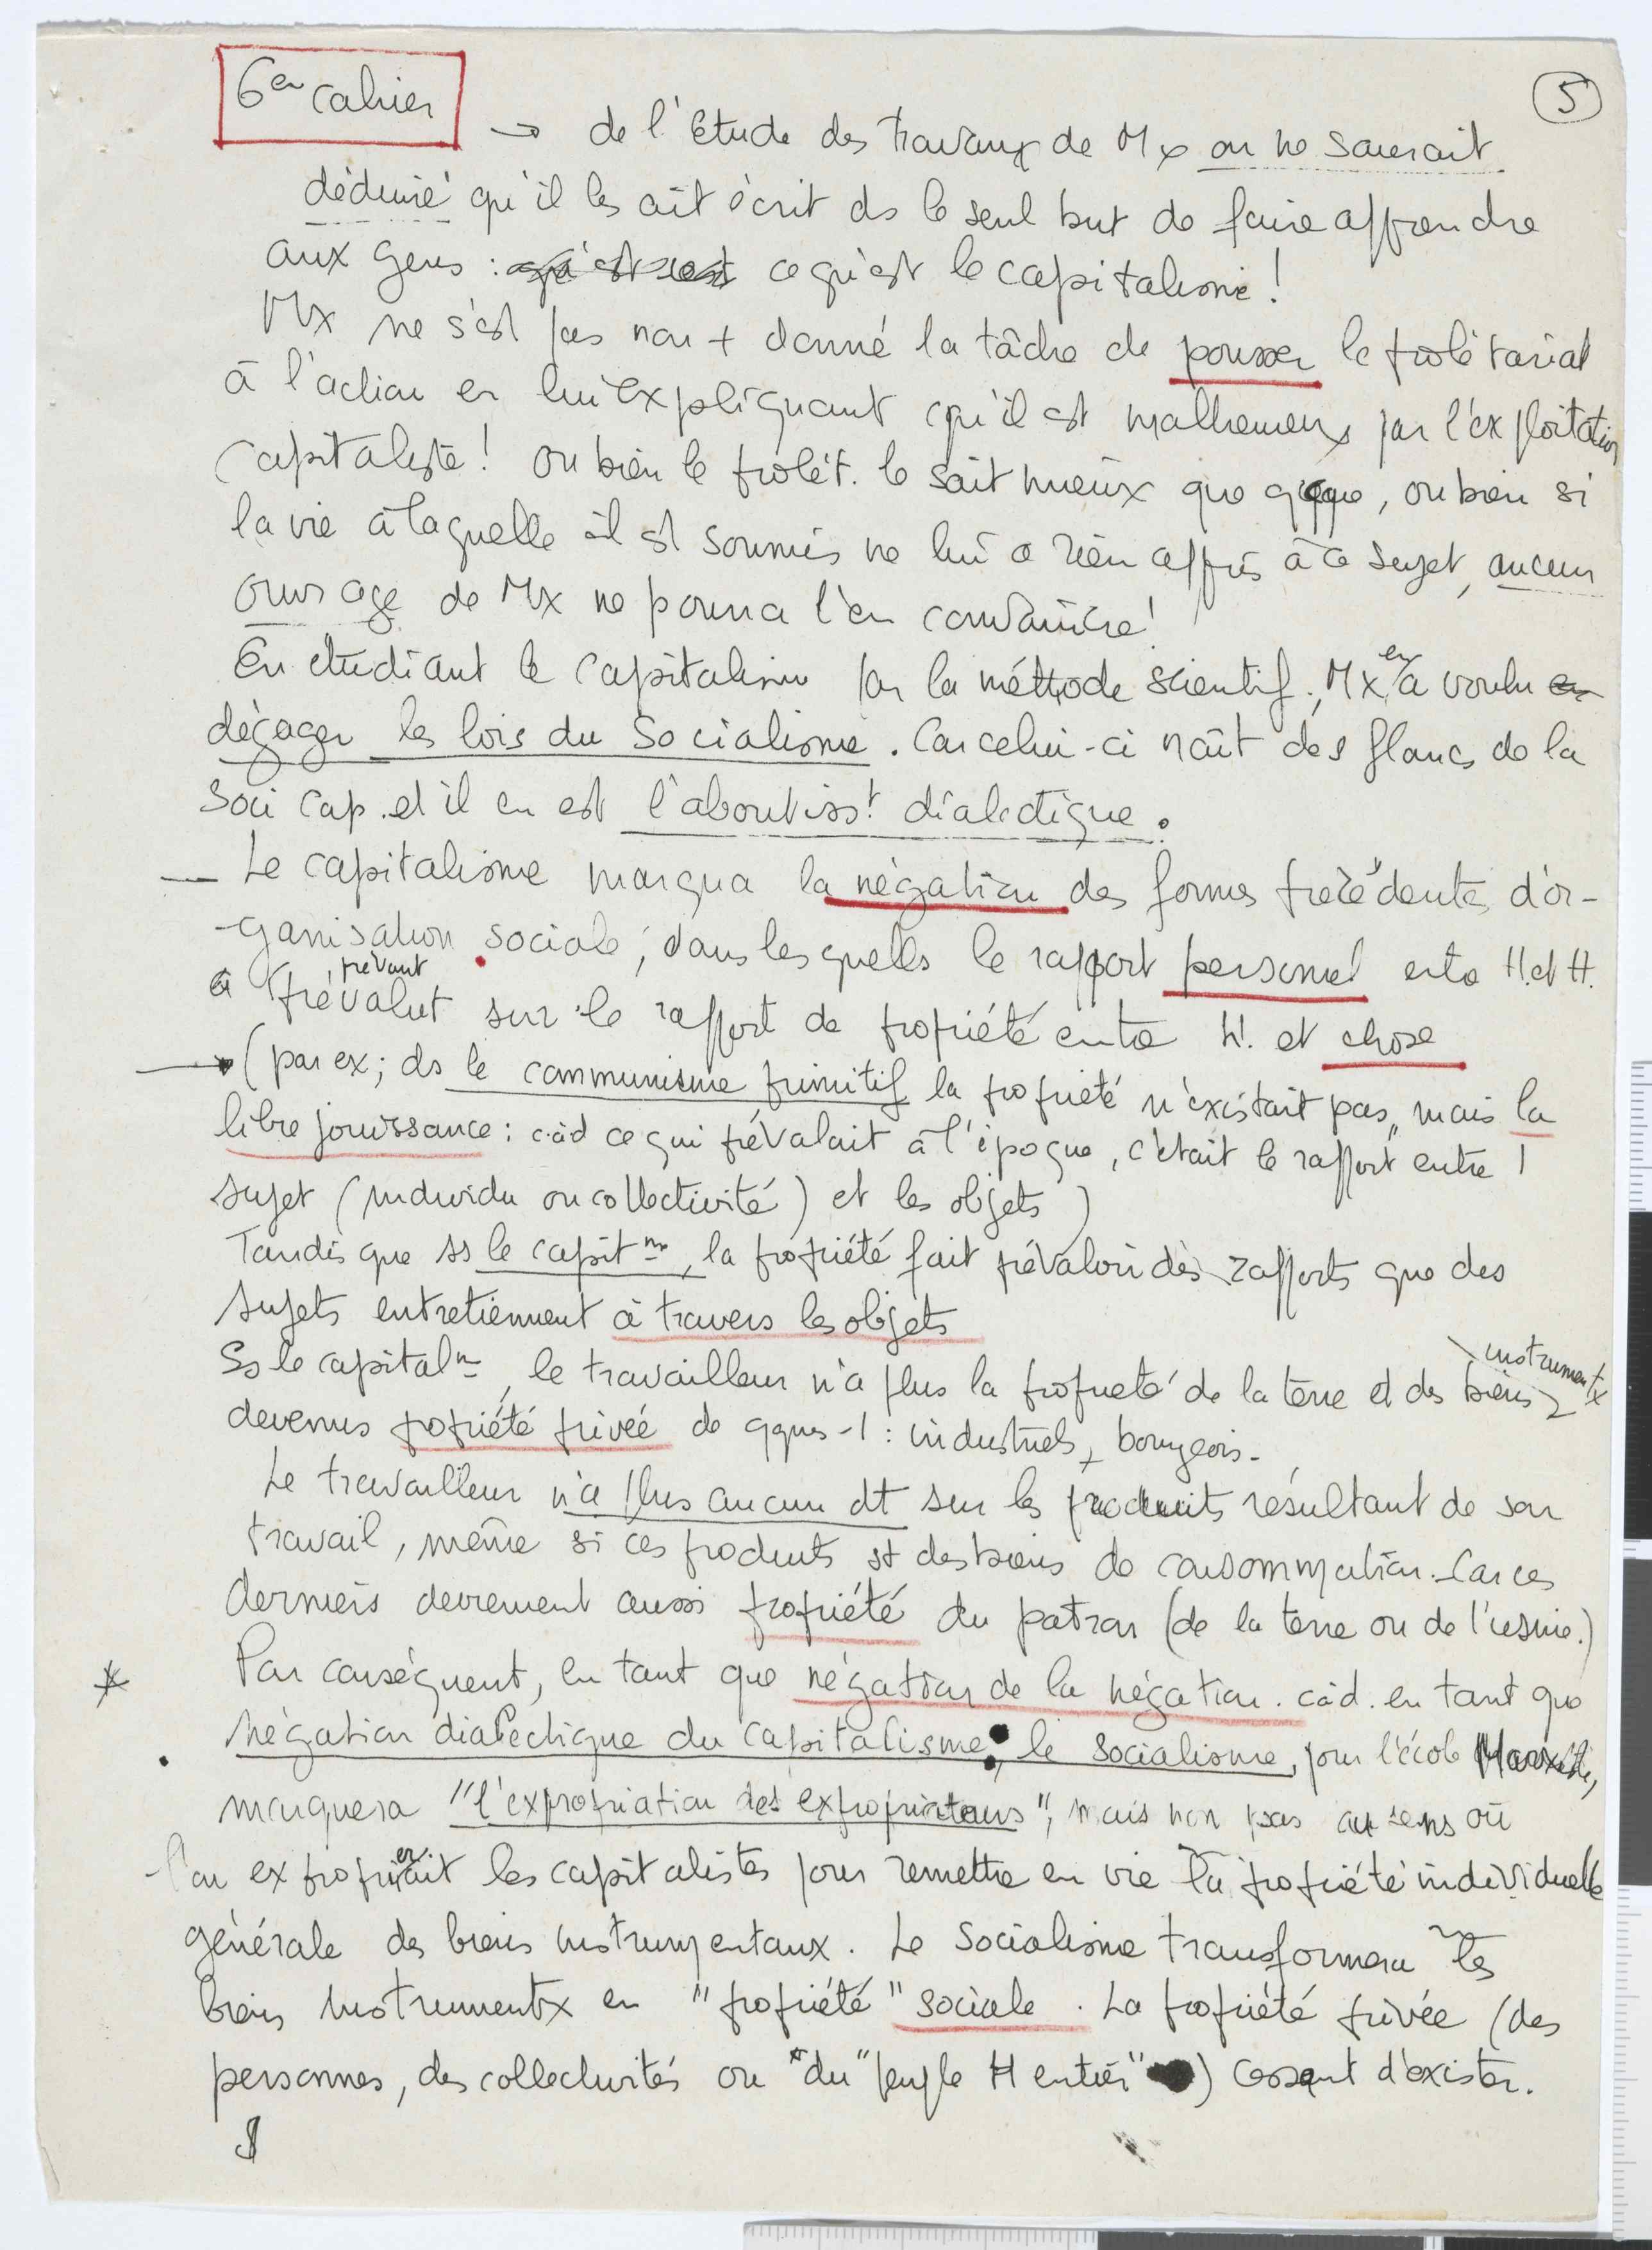 6em cahier
5
→ de l'étude des travaux de Mx on ne saurait
déduire qu'il les ait écrit ds le seul but de faire apprendre
aux gens : ce qu'est le capitalisme !
Mx ne s'est pas non + donné la tâche de pousser le prolétariat
à l'action en lui expliquant qu'il est malheureux par l'exploitation
capitaliste ! Ou bien le prolét. le sait mieux que qque, ou bien si
la vie à laquelle il est soumis ne lui a rien appris à ce sujet, aucun
ouvrage de Mx ne pourra l'en convaincre !
En étudiant le capitalisme par la méthode scientif, Mx en a voulu
dégager les lois du Socialisme. Car celui-ci naît des flancs de la
soci cap. et il en est l'aboutisst dialectique.
— Le capitalisme marqua la négation des formes précédentes d'or-
-ganisation sociale, dans lesquelles le rapport personnel entre H. et H.
prévaut
a prévalut sur le rapport de propriété entre h. et chose
→ (par ex; ds le communisme primitif la propriété n'existait pas, mais la
libre jouissance : càd ce qui prévalait à l'époque, c'était le rapport entre 1
sujet (individu ou collectivité) et les objets)
Tandis que ss le capitme, la propriété fait prévaloir des rapports que des
sujets entretiennent à travers les objets
instrumentx
Ss le capitalme, le travailleur n'a plus la propriété de la terre et des biens
devenus propriété privée de qques-1 : industriels, bourgeois.
Le travailleur n'a plus aucun dt sur les produits résultant de son
travail, même si ces produits st des biens de consommation. Car ces
derniers deviennent aussi propriété du patron (de la terre ou de l'usine.)
* Par conséquent, en tant que négation de la négation. càd. en tant que
négation dialectique du capitalisme, le socialisme, pour l'école Marxiste,
marquera "l'expropriation des expropriateurs", mais non pas au sens où
l'on exproprierait les capitalistes pour remettre en vie la propriété individuelle
générale des biens instrumentaux. Le Socialisme transformera les
biens instrumentx en "propriété" sociale. La propriété privée (des
personnes, des collectivités ou "du" peuple H entier") cessant d'exister.